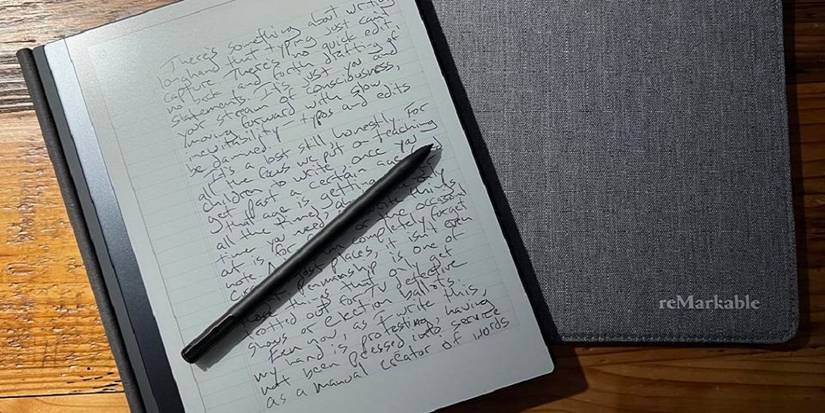 There's something about writing
longhand that typing just can't
capture. There's no quick edit,
no back and forth drafting of
statements. It's just you and
your stream of consciousness,
moving forward with slow
inevitability—typos and edits
be damned.
It's a lost skill, honestly. For
all the focus we put on teaching
children to write, once you
get past a certain age
that age is getting
all the time), 
time you need to write things
at is for the occasional
note
completely forget
places, it isn't even
penmanship is one of
things that only get
trotted out for TV detective
shows or election ballots.
Even now, as I write this,
my hand is protesting, having
not been pressed into service
as a manual creator of words
reMarkable